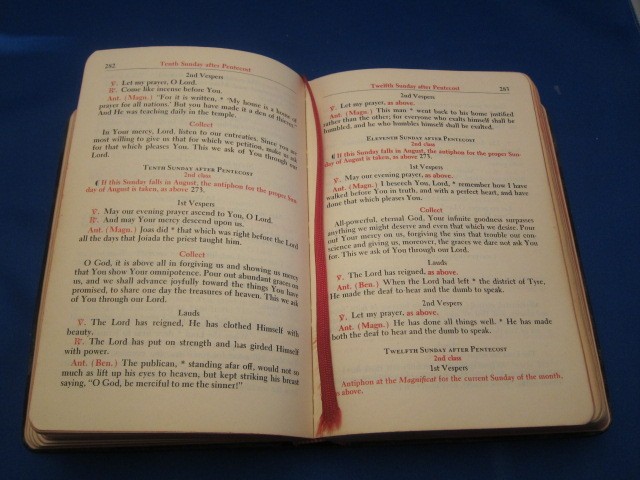 282 Tenth Sunday after Pentecost
2nd Vespers
℣. Let my prayer, O Lord.
℟. Come like incense before You.
Ant. (Magn.) "For it is written, * 'My house is a house of
prayer for all nations.' But you have made it a den of thieves."
And He was teaching daily in the temple.
Collect
In Your mercy, Lord, listen to our entreaties. Since you are
most willing to give us that for which we petition, make us ask
for that which pleases You. This we ask of You through our
Lord.
TENTH SUNDAY AFTER PENTECOST
2nd class
¶ If this Sunday falls in August, the antiphon for the proper Sun-
day of August is taken, as above 273.
1st Vespers
℣. May our evening prayer ascend to You, O Lord.
℟. And may Your mercy descend upon us.
Ant. (Magn.) Joas did * that which was right before the Lord
all the days that Joiada the priest taught him.
Collect
O God, it is above all in forgiving and showing us mercy
that You show Your omnipotence. Pour out abundant graces on
us, and we shall advance joyfully toward the things You have
promised, to share one day the treasures of heaven. This we ask
of You through our Lord.
Lauds
℣. The Lord has reigned, He has clothed Himself with
beauty.
℟. The Lord has put on strength and has girded Himself
with power.
Ant. (Ben.) The publican, * standing afar off, would not so
much as lift up his eyes to heaven, but kept striking his breast
saying, "O God, be merciful to me the sinner!"
Twelfth Sunday after Pentecost 283
2nd Vespers
℣. Let my prayer, as above.
Ant. (Magn.) This man * went back to his home justified
rather than the other; for everyone who exalts himself shall be
humbled, and he who humbles himself shall be exalted.
ELEVENTH SUNDAY AFTER PENTECOST
2nd class
¶ If this Sunday falls in August, the antiphon for the proper Sun-
day of August is taken, as above 273.
1st Vespers
℣. May our evening prayer, as above.
Ant. (Magn.) I beseech You, Lord, * remember how I have
walked before You in truth, and with a perfect heart, and have
done that which pleases You.
Collect
All-powerful, eternal God, Your infinite goodness surpasses
anything we might deserve and even that which we desire. Pour
out Your mercy on us, forgiving the sins that trouble our con-
science and giving us, moreover, the graces we dare not ask You
for. This we ask of You through our Lord.
Lauds
℣. The Lord has reigned, as above.
Ant. (Ben.) When the Lord had left * the district of Tyre,
He made the deaf to hear and the dumb to speak.
2nd Vespers
℣. Let my prayer, as above.
Ant. (Magn.) He has done all things well. * He has made
both the deaf to hear and the dumb to speak.
TWELFTH SUNDAY AFTER PENTECOST
2nd class
1st Vespers
Antiphon at the Magnificat for the current Sunday of the month,
as above.